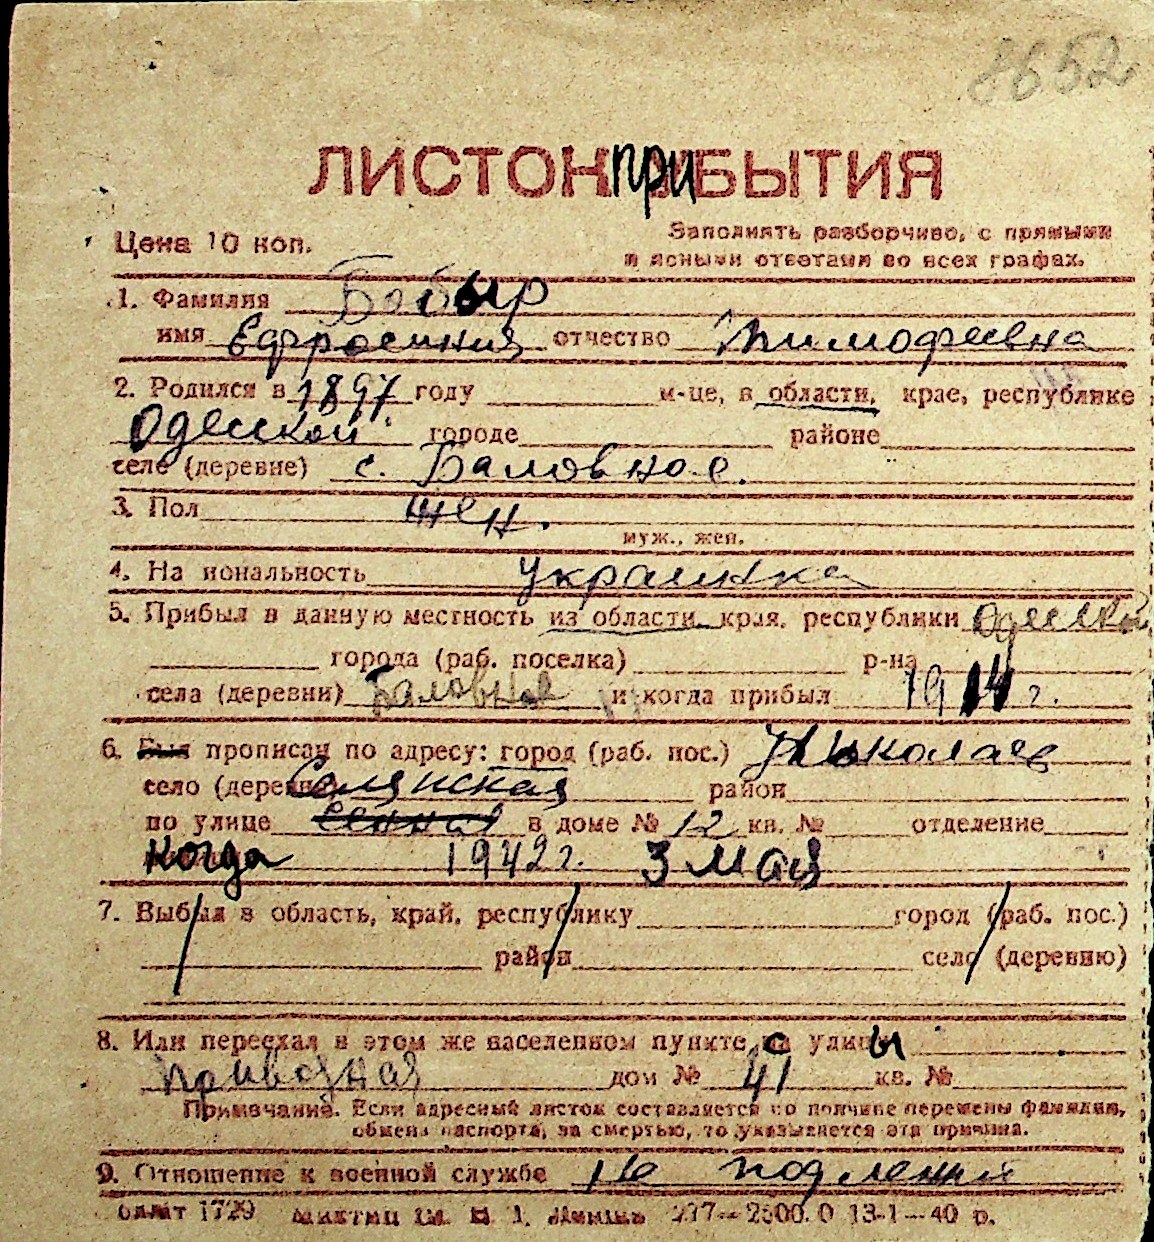 8652
ЛИСТОК ПРИБЫТИЯ
Цена 10 коп. Заполнять разборчиво, с прямыми
и ясными ответами во всех графах.
1. Фамилия Бобыр
имя Ефросиния отчество Тимофеевна
2. Родился в 1897 году м-це, в области, крае, республике
Одесской городе районе
селе (деревне) с. Баловное.
3. Пол жен.
муж., жен.
4. На иональность украинка
5. Прибыл в данную местность из области, края, республики Одесской
города (раб. поселка) р-на
села (деревни) Баловная и когда прибыл 1914 г.
6. Был прописан по адресу: город (раб. пос.) Николаев
село (деревня) район
по улице Сенная в доме № 12 кв. № отделение
когда 1942 г. 3 мая
7. Выбыл в область, край, республику город (раб. пос.)
район село (деревню)
8. Или переехал в этом же населенном пункте с улицы
Привозная дом № 41 кв. №
Примечание. Если адресный листок составляется по причине перемены фамилии,
обмена паспорта, за смертью, то указывается эта причина.
9. Отношение к военной службе
1729 237—2500.0 13-1—40 р.